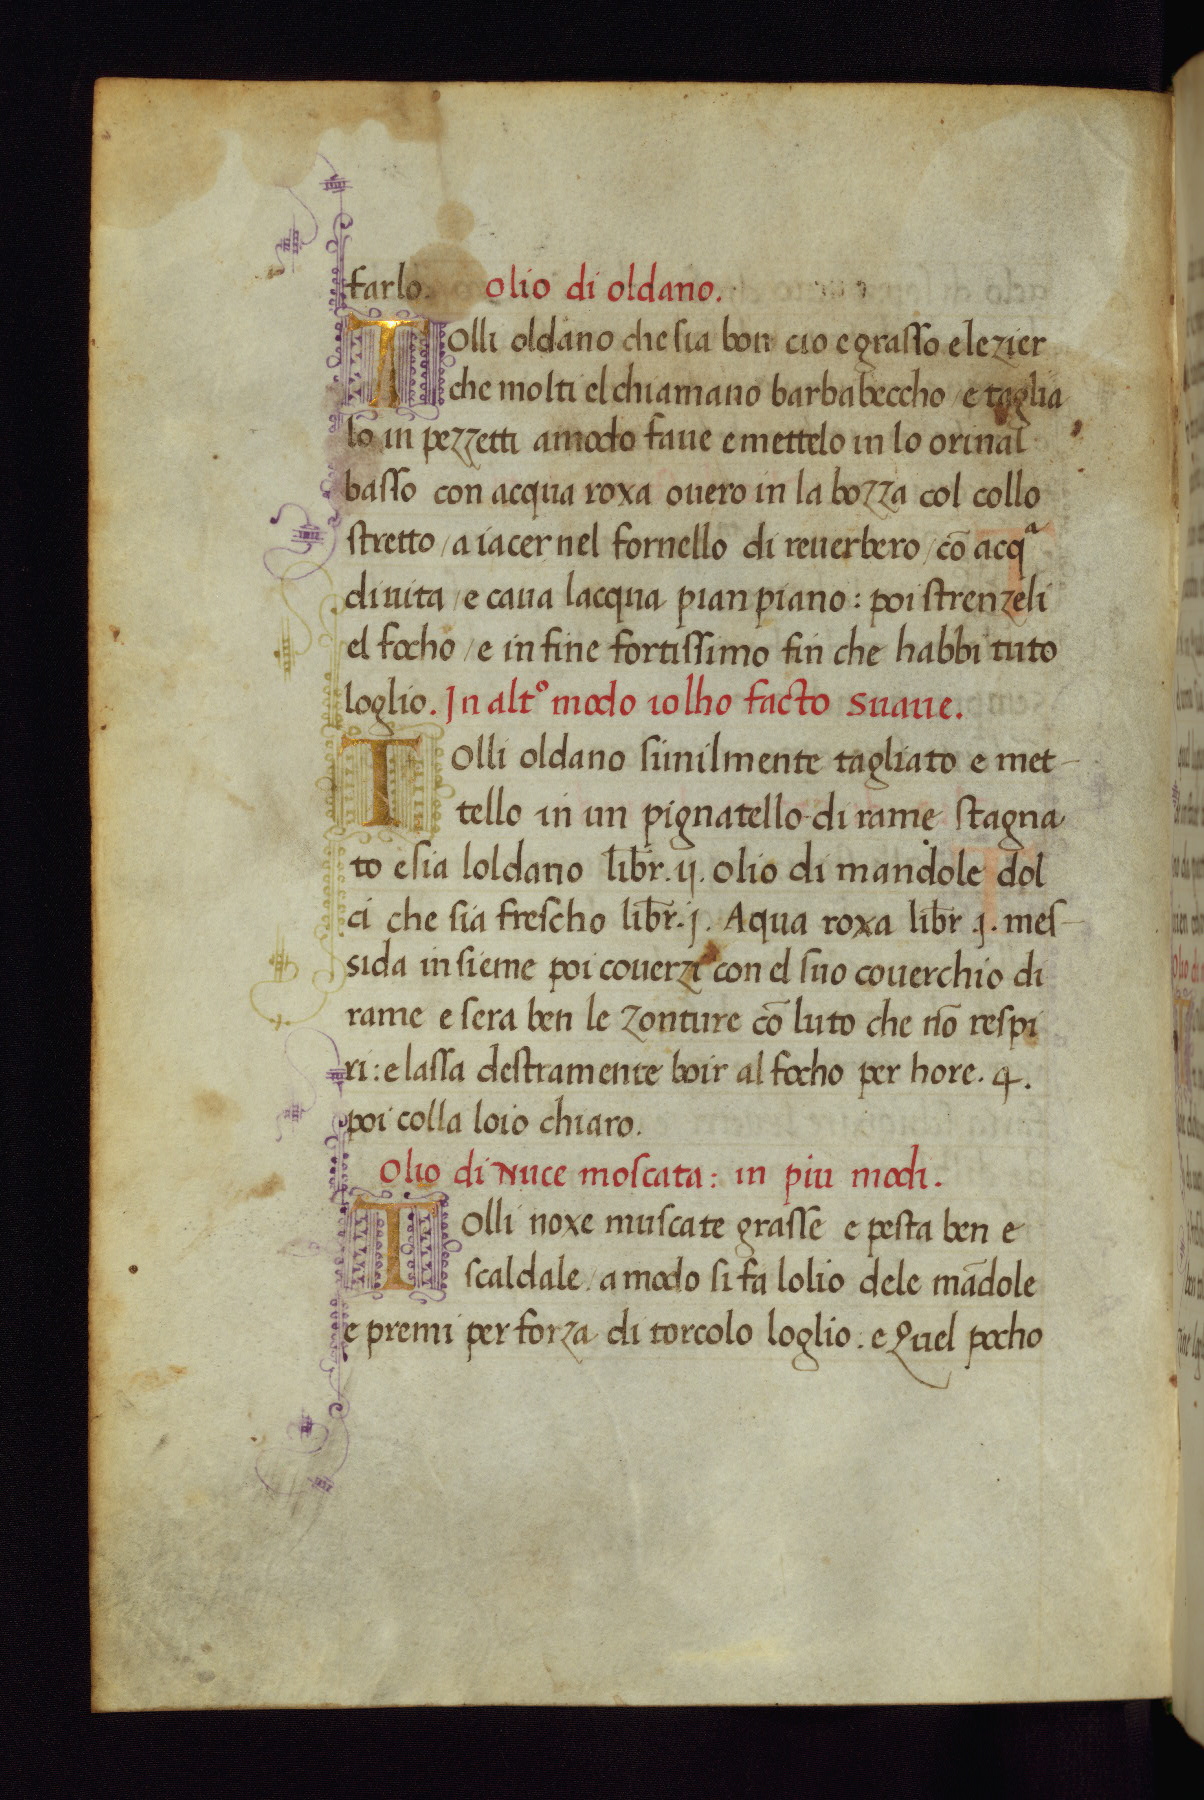 farlo. olio di oldano.
Tolli oldano che sia bon cio e grasso e lezier
che molti el chiamano barbabeccho / e taglia
lo in pezzetti a modo faue e mettelo in lo orinal
basso con acqua roxa ouero in la bozza col collo
stretto / a iacer nel fornello di reuerbero / cō acqᵃ
di uita / e caua lacqua pian piano : poi strenzeli
el focho / e in fine fortissimo fin che habbi tuto
loglio. In altº modo iolho facto suaue.
Tolli oldano similmente tagliato e met-
tello in un pignatello di rame stagna
to e sia loldano libr. ij. olio di mandole dol
ci che sia frescho libr. j. Aqua roxa libr. j. mes-
sida insieme poi couerzi con el suo couerchio di
rame e sera ben le zonture cō luto che nō respi
ri : e lassa destramente boir al focho per hore. 4.
poi colla loio chiaro.
Olio di Nuce moscata : in piu modi.
Tolli noxe muscate grasse e pesta ben e
scaldale / a modo si fa lolio dele mādole
e premi per forza di torcolo loglio. e Quel pocho